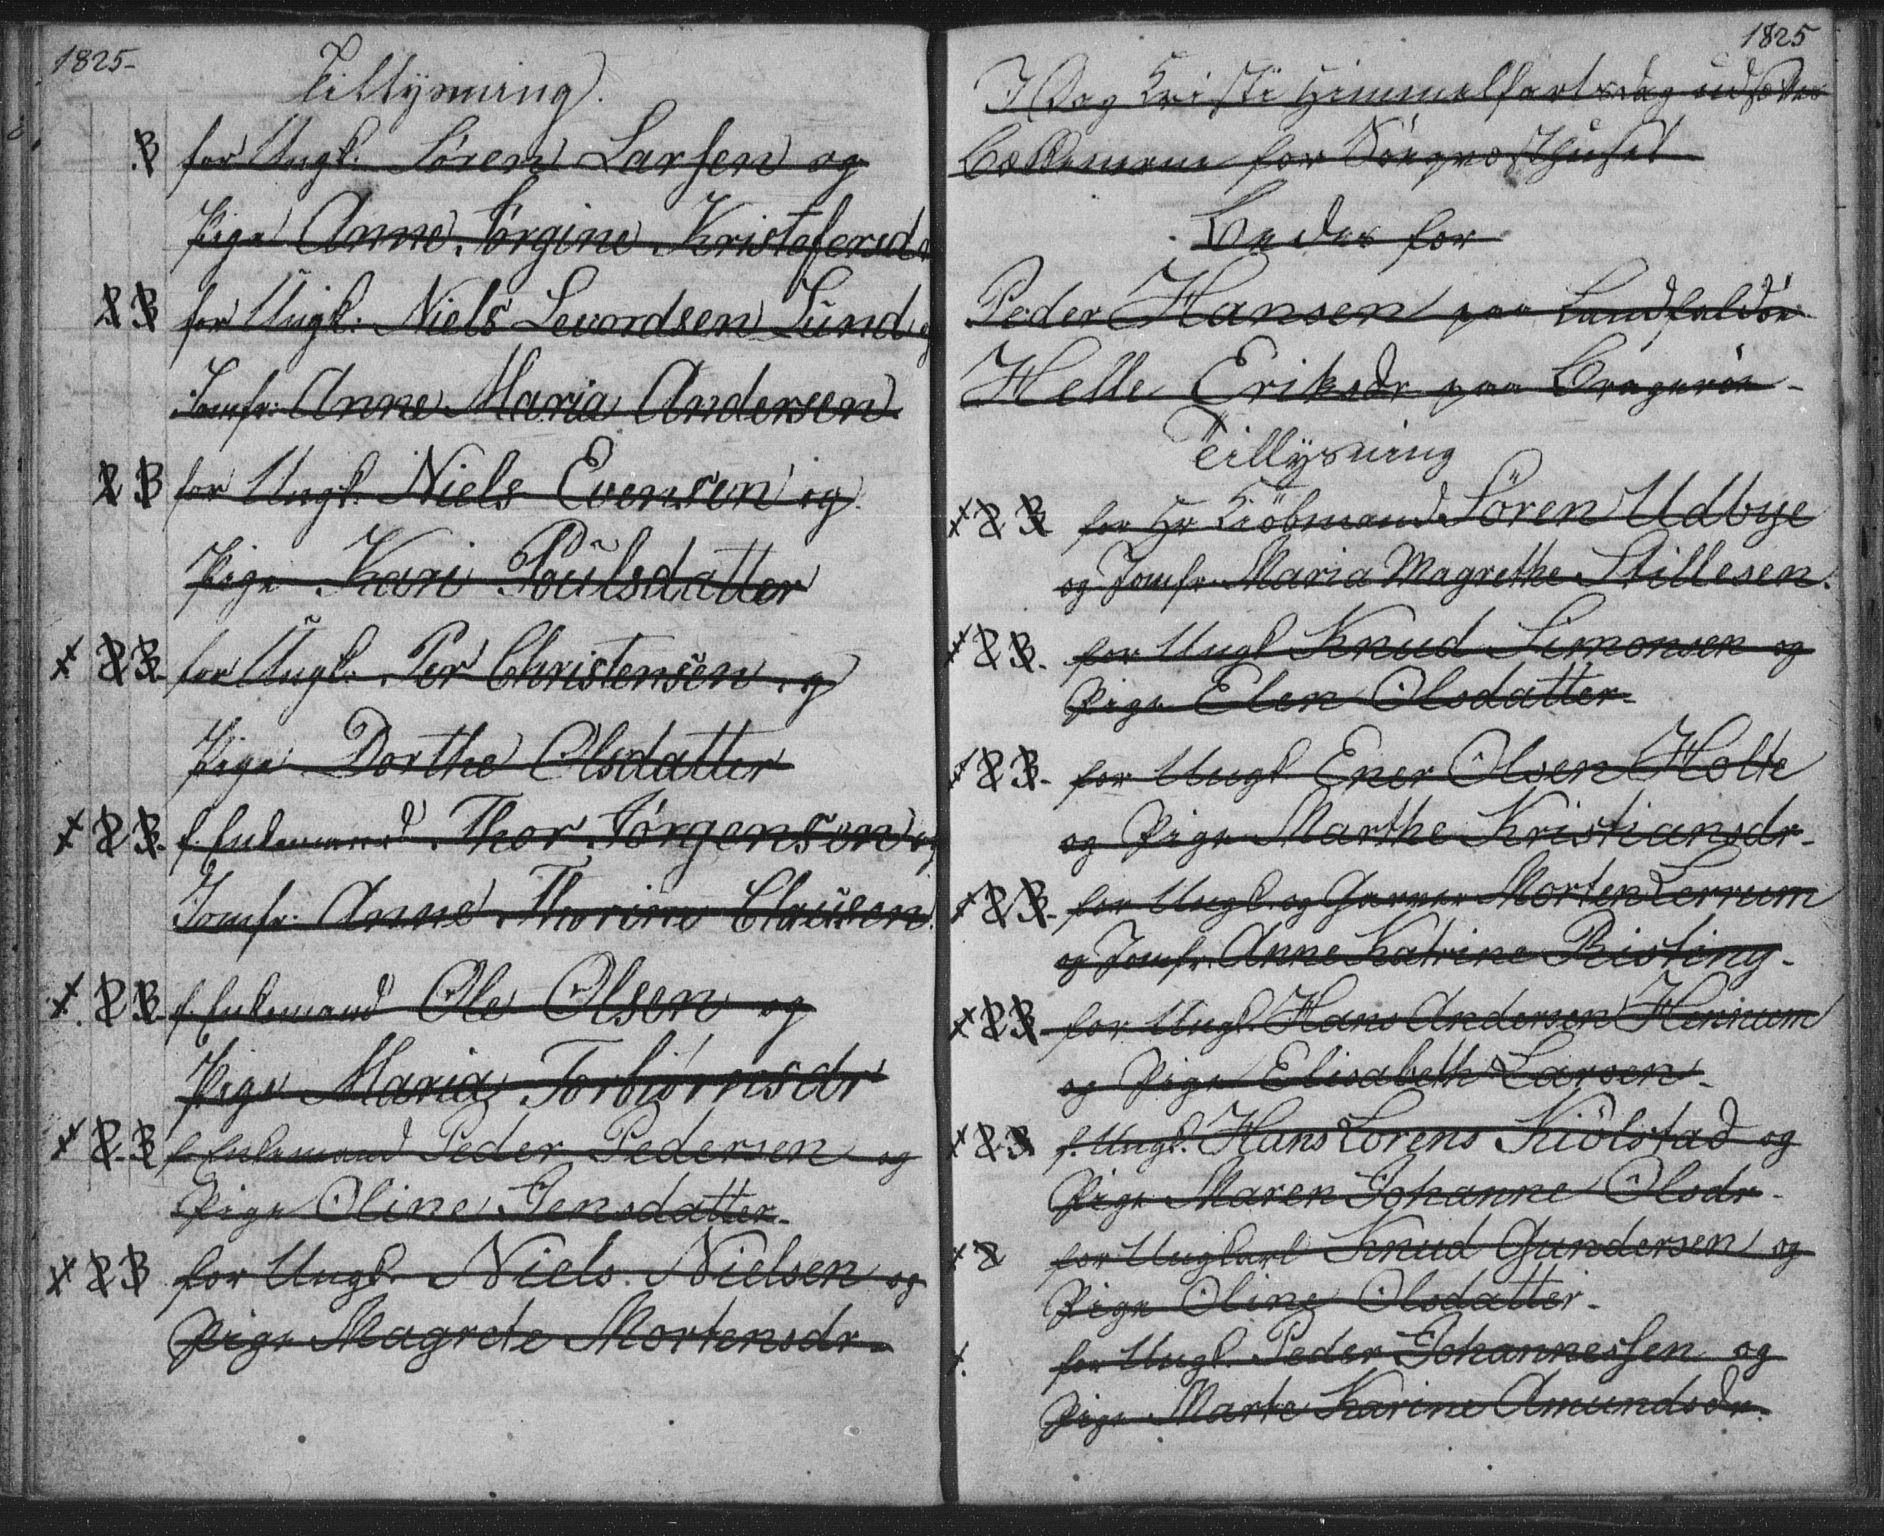 1825-
Tillysning.
B for Ungk. Sören Larsen og
Pige Anne Jörgine Kristofersd
2 B for Ungk. Niels Levordsen Lund og
Jomfr. Anne Maria Andersen
2 B for Ungk. Niels Evensen og
Pige Kari Poulsdatter
2 B. for Ungk. Per Christensen og
Pige Dorthe Olsdatter
2 B. f. Enkemand Thor Jörgensen og
Jomfr. Anne Thorine Clausen
2 B. f. Enkemand Ole Olsen og
Pige Maria Torbiörnsdr
2 B f. Enkemand Peder Pedersen og
Pige Oline Jensdatter.
2 B for Ungk. Niels Nielsen og
Pige Magrete Mortensdr.
1825
I Dag Kristi Himmelfartsdag udsættes
Bækkenerne for
Bedes for
Peder Hansen paa Landfaldöe
Helle Eriksdr paa Bragernes
Tillysning
2 B for Hr Kiöbmand Sören Udbye
og Jomfr. Maria Magrethe Stillesen.
2 B. for Ungk Knud Simonsen og
Pige Elen Olsdatter.
2 B. for Ungk Ener Olsen Holte
og Pige Marthe Kristiansdr.
2 B. for Ungk. og Garver Morten Lerrum
og Jomfr. Anne Katrine Risting.
2 B. for Ungk. Hans Andersen Hennum
og Pige Elisabeth Larsen.
2 B f. Ungk. Hans Lorens Kiölstad og
Pige Maren Johanne Olsdr.
2 for Ungkarl Knud Gundersen og
Pige Oline Olsdatter.
for Ungk. Peder Johannessen og
Pige Marte Karine Amundsdr.